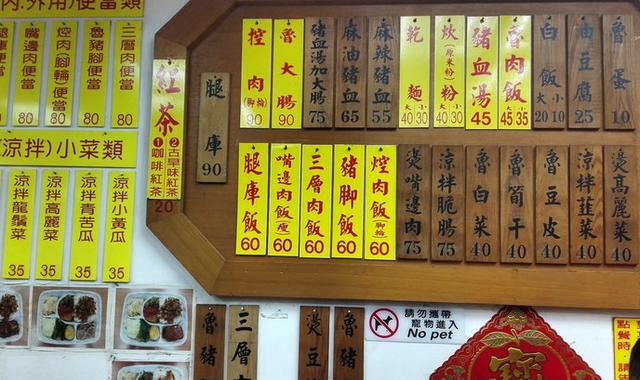 內.外用)便當類
三層肉便當 80
魯豬腳便當 80
焢肉(腳輪)便當 80
嘴邊肉便當 80
腿庫便當
(涼拌)小菜類
涼拌小黃瓜 35
涼拌青苦瓜 35
涼拌高麗菜 35
涼拌龍鬚菜 35
紅茶
❶咖啡紅茶
❷古早味紅茶
20
腿庫 90
魯蛋 10
油豆腐 25
白飯 大20 小10
魯肉飯 大45 小35
豬血湯 45
炊(原米粉)粉 大40 小30
乾麵 大40 小30
麻辣豬血 55
麻油豬血 65
豬血湯加大腸 75
魯大腸 90
控肉(腳輪) 90
燙高麗菜 40
涼拌韮菜 40
魯豆皮 40
魯筍干 40
魯白菜 40
涼拌脆腸 75
燙嘴邊肉 75
焢肉飯(腳輪) 60
豬腳飯 60
三層肉飯 60
嘴邊肉飯(瘦) 60
腿庫飯 60
魯豬
燙豆
三層
魯豬
請勿攜帶
寵物進入
No pet
點
餐時
請告